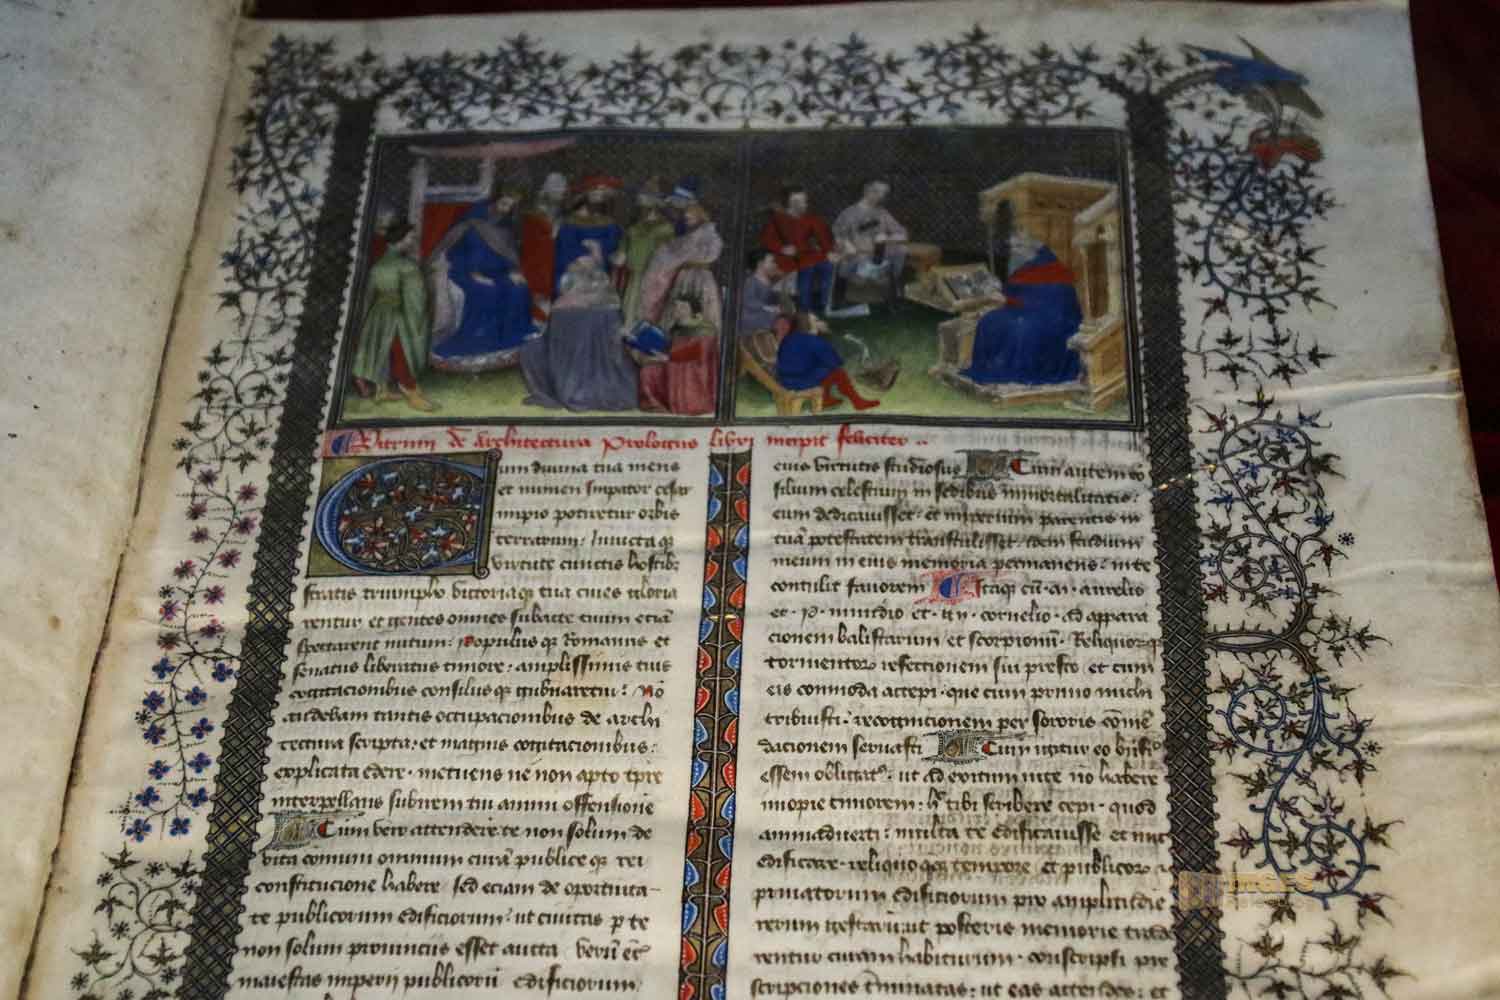 Vitruvii de architectura Prologus libri incipit feliciter
Cum divina tua mens
et numen Imperator cesar
imperio potiretur orbis
terrarum: Invictaque
virtute cunctis hostibus
stratis triumpho victoriaque tua cives gloria
rentur et gentes omnes subacte tuum etiam
spectarent nutum: Populusque Romanus et
senatus liberatus timore: amplissimis tuis
cogitacionibus consiliisque gubnaretur: No
audebam tantis occupacionibus de archi
tectura scripta: et magnis cogitacionibus:
explicata edere. metuens ne non apto tpre
interpellans subirem tui animi offensione
Cum vero attendere te non solum de
vita comuni omnium curam publiceque rei
constitucione habere. sed eciam de oportunita-
te publicorum edificiorum: ut civitas per te
non solum provinciis esset aucta. verum etiam
maiestas imperii publicorum edificiorum
eius virtutis studiosus Cum autem co
silium celestium in sedibus immortalitatis:
eum dedicavisset. et imperium parentis in
tuam potestatem transtulisset. idem studium
meum in eius memoria permanens: in te
contulit favorem Itaque cum. m. aurelio
et. p. minidio et. gn. cornelio. ad appara
cionem balistarum et scorpionum. Reliquorumque
tormentorum refectionem fui presto et cum
eis commoda accepi. que cum primo michi
tribuisti: recognicionem per sororis comen
dacionem servasti Cum igitur eo bnficio
essem obligatus. ut ad exitum vite no habere
inopie timorem: hec tibi scribere cepi. quod
animadverti: multa te edificavisse et nuc
edificare. reliquo quoque tempore et publicorum et
privatorum edificiorum pro amplitudie
rerum gestarum ut posteris memorie trade
rentur curam habiturum. conscripsi pre
scripciones terminatas: ut eas attendes: et